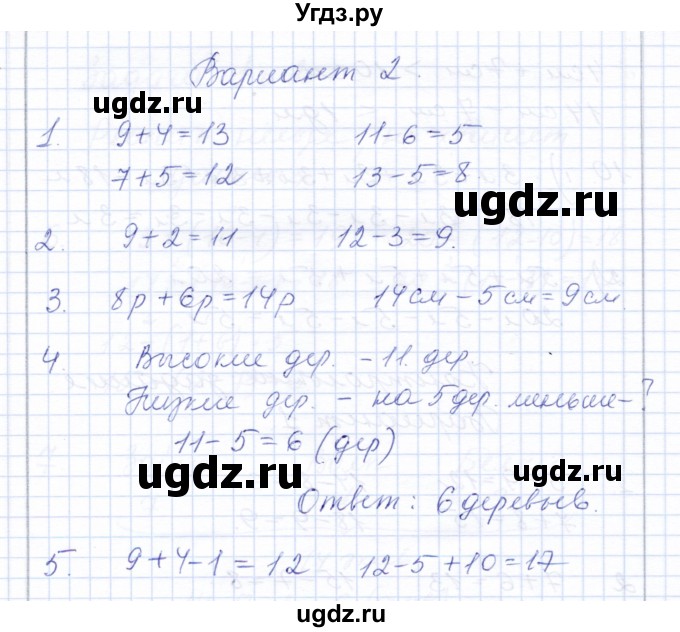 Угдз.ру
Вариант 2.
ugdz.ru
1. 9+4=13 11-6=5
7+5=12 13-5=8
ugdz.ru
2. 9+2=11 12-3=9.
3. 8р+6р=14р 14см-5см=9см.
ugdz.ru
4. Высокие дер. - 11 дер.
Низкие дер. - на 5 дер. меньше-?
11-5=6 (дер)
ugdz.ru
ugdz.ru
Ответ: 6 деревьев.
5. 9+4-1=12 12-5+10=17
ugdz.ru